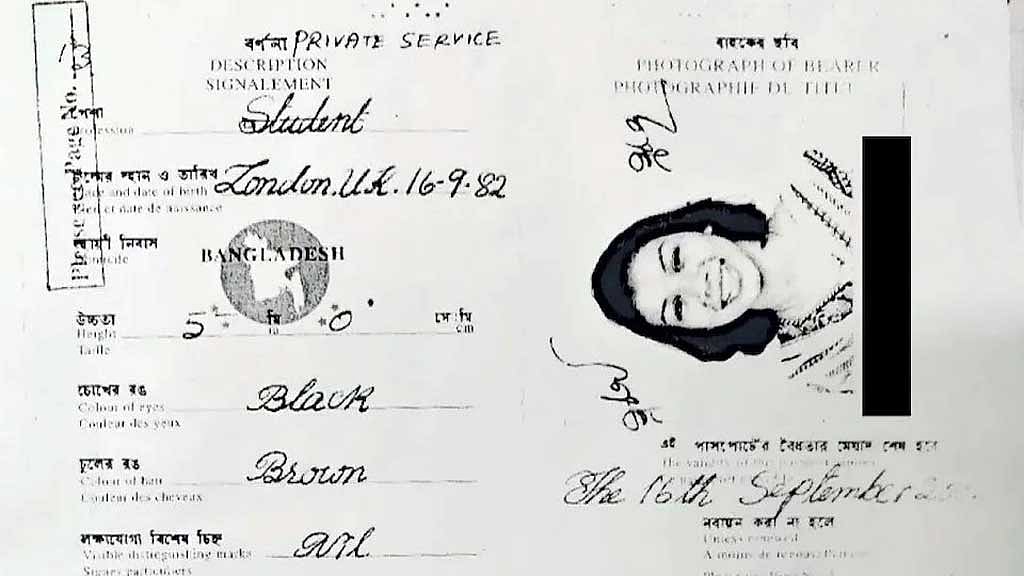 বর্ণনা PRIVATE SERVICE
DESCRIPTION
SIGNALEMENT
পেশা
Profession Student
স্থান ও তারিখ
Place and date of birth London. U.K. 16-9-82
Lieu et date de naissance
নিবাস
Domicile
BANGLADESH
উচ্চতা 5 মি 0 সেঃমি
Height m cm
Taille
চোখের রঙ
Colour of eyes Black
Couleur des yeux
চুলের রঙ
Colour of hair Brown
Couleur des cheveux
লক্ষ্যযোগ্য বিশেষ চিহ্ন
Visible distinguishing marks Nil
Signes particuliers
Page No.
বাহকের ছবি
PHOTOGRAPH OF BEARER
PHOTOGRAPHIE DU TITUL
এই পাসপোর্টের বৈধতার মেয়াদ শেষ হবে
The validity of
The 16th September
নবায়ন করা না হলে
Unless renewed
A moins de